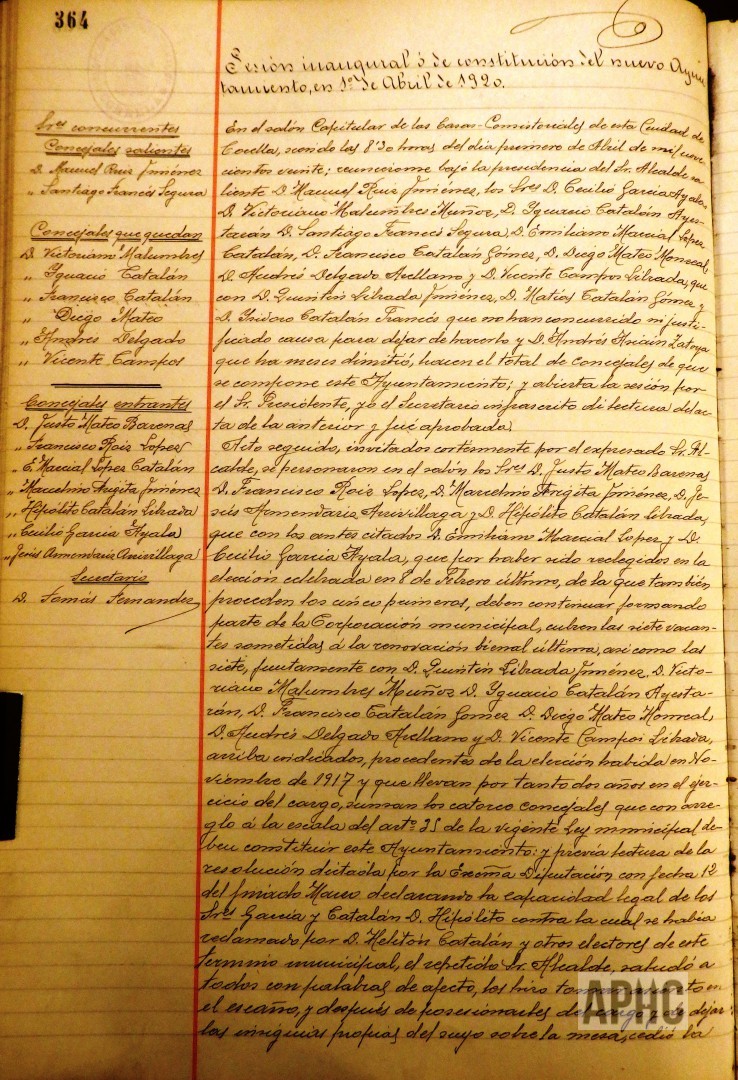 364
Sesión inaugural ó de constitución del nuevo Ayun-
tamiento, en 1º de Abril de 1920.
Sres concurrentes
Concejales salientes
D. Manuel Ruiz Jiménez
" Santiago Francés Segura
Concejales que quedan
D. Victoriano Malumbres
" Ygnacio Catalán
" Francisco Catalán
" Diego Mateo
" Andres Delgado
" Vicente Campos
Concejales entrantes
D. Justo Mateo Barenas
" Francisco Roiz Lopez
" E. Marcial López Catalán
" Marcelino Angita Jiménez
" Hipólito Catalán Librada
" Cecilio Garcia Ayala
" Jesús Armendariz Arrivillaga
Secretario
D. Tomás Fernandez
En el salón Capitular de las Casas-Consistoriales de esta Ciudad de
Corella, siendo las 8'30 horas del dia primero de Abril de mil nove-
cientos veinte; reuniéronse bajo la presidencia del Sr. Alcalde sa-
liente D. Manuel Ruiz Jiménez, los Sres D. Cecilio Garcia Ayala,
D. Victoriano Malumbres Muñoz, D. Ygnacio Catalán Ayes-
tarán D. Santiago Francés Segura, D. Emiliano Marcial López
Catalán, D. Francisco Catalán Gómez, D. Diego Mateo Monreal,
D. Andrés Delgado Arellano y D. Vicente Campos Librada, que
con D. Quintín Librada Jiménez, D. Matías Catalán Gómez y
D. Isidoro Catalán Francés que no han concurrido ni justi-
ficado causa para dejar de hacerlo y D. Andrés Asiain Latoya
que ha meses dimitió, hacen el total de concejales de que
se compone este Ayuntamiento; y abierta la sesión por
el Sr. Presidente, yo el Secretario infrascrito di lectura del ac-
ta de la anterior y fué aprobada.
Acto seguido, invitados cortésmente por el expresado Sr. Al-
calde, se personaron en el salón los Sres D. Justo Mateo Barenas
D. Francisco Roiz Lopez, D. Marcelino Angita Jiménez, D. Je-
sús Armendariz Arrivillaga y D. Hipólito Catalán Librada,
que con los antes citados D. Emiliano Marcial Lopez y D.
Cecilio Garcia Ayala, que por haber sido reelegidos en la
elección celebrada en 8 de Febrero último, de la que también
proceden los cinco primeros, deben continuar formando
parte de la Corporación municipal, cubren las siete vacan-
tes sometidas á la renovación bienal última, asi como los
siete, juntamente con D. Quintín Librada Jiménez, D. Victo-
riano Malumbres Muñoz D. Ygnacio Catalán Ayesta-
rán, D. Francisco Catalán Gomez D. Diego Mateo Monreal,
D. Andrés Delgado Arellano y D. Vicente Campos Librada,
arriba indicados, procedentes de la elección habida en No-
viembre de 1917 y que llevan por tanto dos años en el ejer-
cicio del cargo, suman los catorce concejales que con arre-
glo á la escala del artº 35 de la vigente Ley municipal de-
ben constituir este Ayuntamiento: y previa lectura de la
resolución dictada por la Excma Diputación con fecha 12
del finado Marzo declarando la capacidad legal de los
Sres García y Catalán D. Hipólito contra la cual se había
reclamado por D. Melitón Catalán y otros electores de este
término municipal, el repetido Sr. Alcalde, saludó a
todos con palabras de afecto, los hizo tomar
el escaño, y después de posesionarles del cargo y de dejar
las insignias propias del suyo sobre la mesa, cedió la
APHC